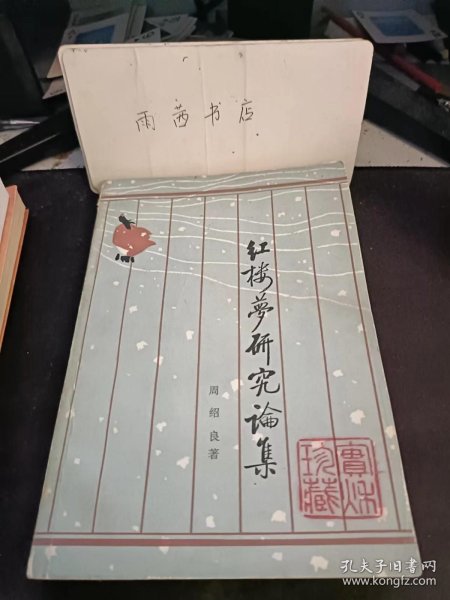 雨茜书店
红楼夢研究論集
周绍良著
珍藏
孔夫子旧书网
www.kongfz.com